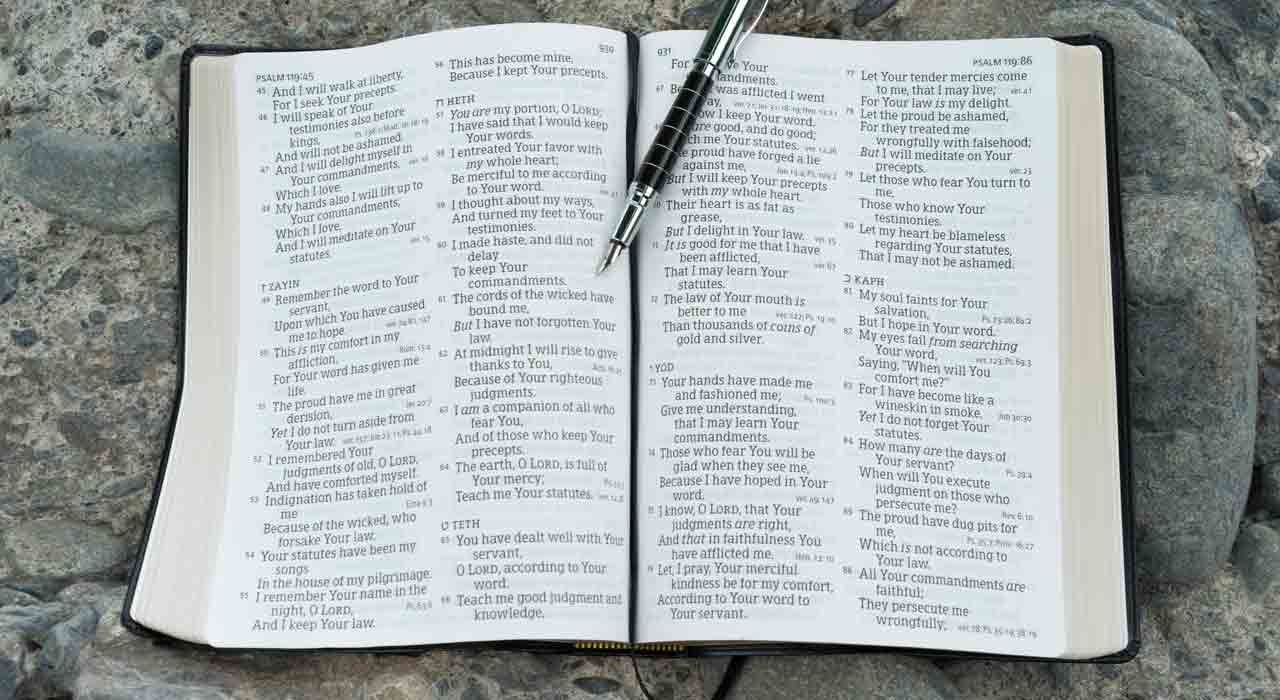 PSALM 119:45
930
45 And I will walk at liberty,
For I seek Your precepts.
46 I will speak of Your
testimonies also before
kings,
And will not be ashamed.
47 And I will delight myself in
Your commandments,
Which I love.
48 My hands also I will lift up to
Your commandments,
Which I love,
And I will meditate on Your
statutes. ver. 15
ז ZAYIN
49 Remember the word to Your
servant,
Upon which You have caused
me to hope.
50 This is my comfort in my
affliction,
For Your word has given me
life.
51 The proud have me in great
derision, Jer. 20:7
Yet I do not turn aside from
Your law.
52 I remembered Your
judgments of old, O LORD,
And have comforted myself.
53 Indignation has taken hold of
me Ezra 9:3
Because of the wicked, who
forsake Your law.
54 Your statutes have been my
songs
In the house of my pilgrimage.
55 I remember Your name in the
night, O LORD, Ps. 63:6
And I keep Your law.
56 This has become mine,
Because I kept Your precepts.
ח HETH
57 You are my portion, O LORD;
I have said that I would keep
Your words.
58 I entreated Your favor with
my whole heart;
Be merciful to me according
to Your word. ver. 41
59 I thought about my ways,
And turned my feet to Your
testimonies.
60 I made haste, and did not
delay
To keep Your
commandments.
61 The cords of the wicked have
bound me,
But I have not forgotten Your
law.
62 At midnight I will rise to give
thanks to You, Acts 16:25
Because of Your righteous
judgments.
63 I am a companion of all who
fear You,
And of those who keep Your
precepts.
64 The earth, O LORD, is full of
Your mercy;
Teach me Your statutes. ver. 12, 8
ט TETH
65 You have dealt well with Your
servant,
O LORD, according to Your
word.
66 Teach me good judgment and
knowledge,
931
PSALM 119:86
For Your
67 was afflicted I went
I keep Your word.
are good, and do good;
me Your statutes. ver. 12, 26
proud have forged a lie
against me, Job 13:4; Ps. 109:2
But I will keep Your precepts
with my whole heart.
Their heart is as fat as
grease,
But I delight in Your law. ver. 15
It is good for me that I have
been afflicted, ver. 67
That I may learn Your
statutes.
72 The law of Your mouth is
better to me ver. 127; Ps. 19:10
Than thousands of coins of
gold and silver.
י YOD
73 Your hands have made me
and fashioned me;
Give me understanding,
that I may learn Your
commandments.
74 Those who fear You will be
glad when they see me,
Because I have hoped in Your
word. ver. 49, 147
75 I know, O LORD, that Your
judgments are right,
And that in faithfulness You
have afflicted me. Heb. 12:10
76 Let, I pray, Your merciful
kindness be for my comfort,
According to Your word to
Your servant.
77 Let Your tender mercies come
to me, that I may live; ver. 41
For Your law is my delight.
78 Let the proud be ashamed,
For they treated me
wrongfully with falsehood;
But I will meditate on Your
precepts. ver. 23
79 Let those who fear You turn to
me,
Those who know Your
testimonies.
80 Let my heart be blameless
regarding Your statutes,
That I may not be ashamed.
כ KAPH
81 My soul faints for Your
salvation, Ps. 73:26; 84:2
But I hope in Your word.
82 My eyes fail from searching
Your word, ver. 123; Ps. 69:3
Saying, "When will You
comfort me?"
83 For I have become like a
wineskin in smoke, Job 30:30
Yet I do not forget Your
statutes.
84 How many are the days of
Your servant? Ps. 39:4
When will You execute
judgment on those who
persecute me? Rev. 6:10
85 The proud have dug pits for
me, Ps. 35:7; Prov. 16:27
Which is not according to
Your law.
86 All Your commandments are
faithful;
They persecute me
wrongfully; ver. 78; Ps. 35:19; 38:19